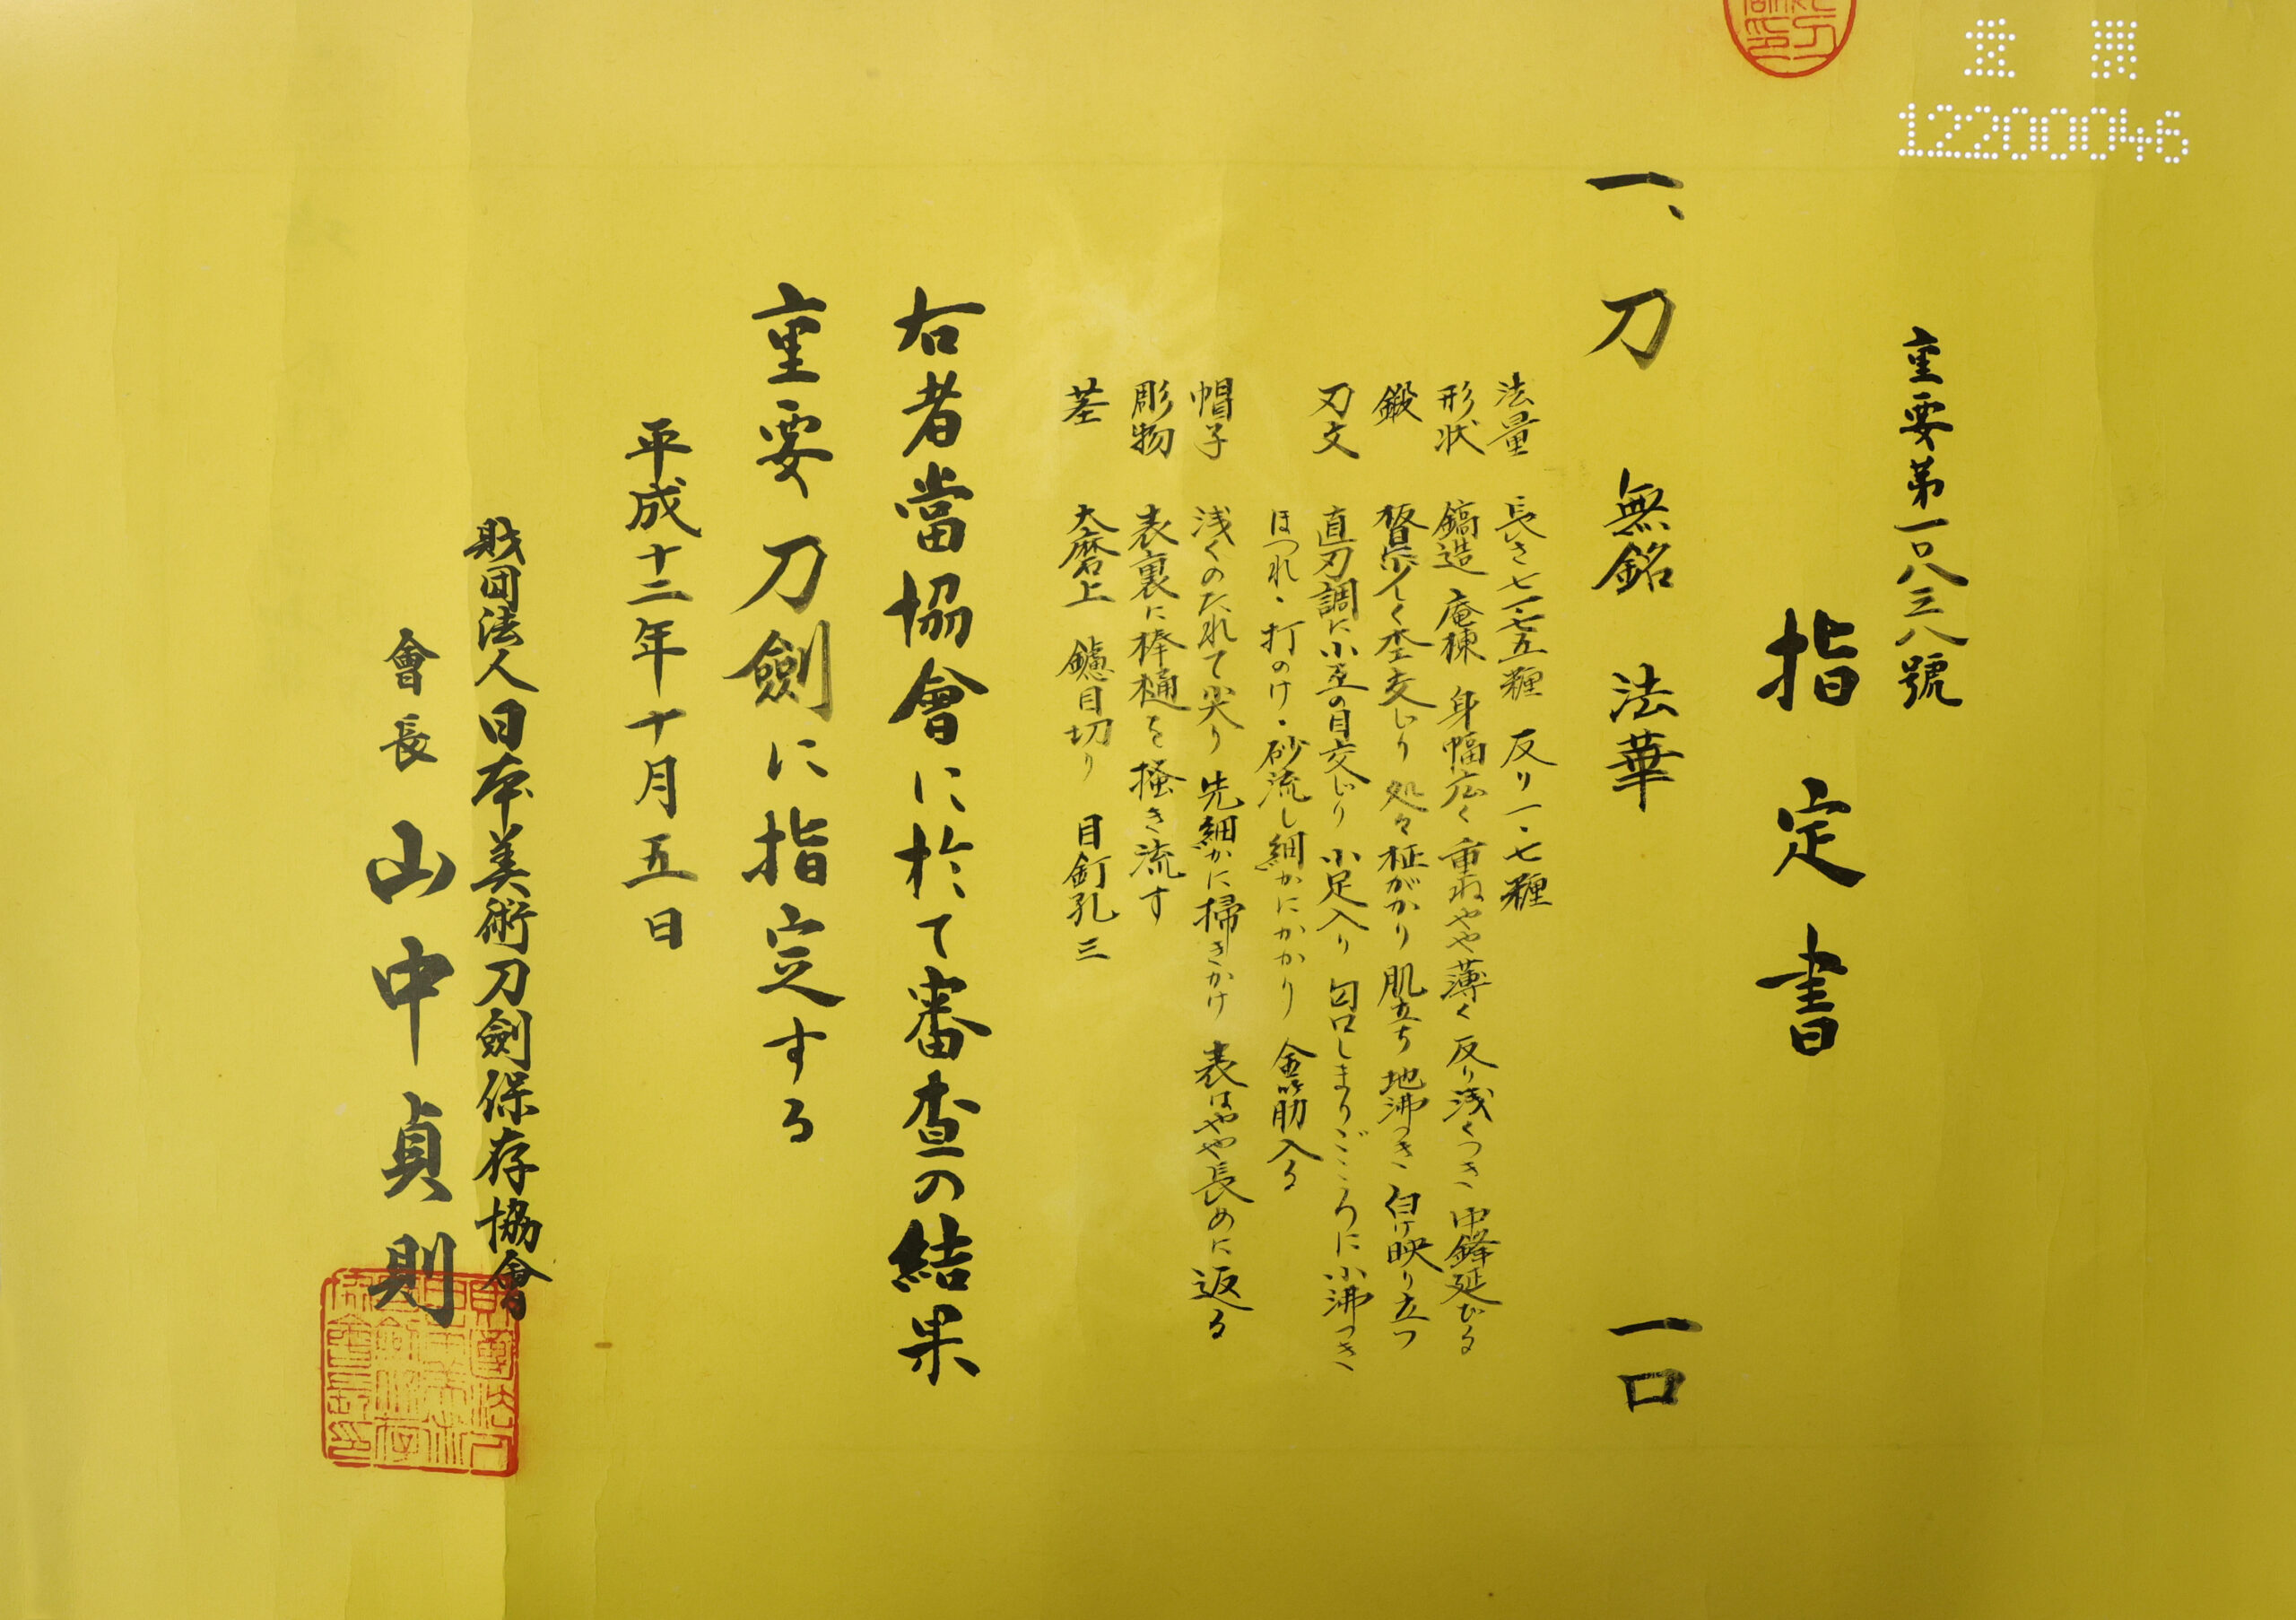 12200046
重要第一〇八三八號
指定書
一、刀 無銘 法華 一口
法量 長さ七一・七五糎 反り一・七糎
形状 鎬造 庵棟 身幅広く 重ねやや薄く 反り浅くつき 中鋒延びる
鍛 板目流れ 杢交じり 処々柾がかり 肌立ち 地沸つき 白け映り立つ
刃文 直刃調に小互の目交じり 小足入り 匂口しまりごころに小沸つき
ほつれ・打のけ・砂流し細かにかかり 金筋入る
帽子 浅くのたれて尖り 先細かに掃きかけ 表はやや長めに返る
彫物 表裏に棒樋を掻き流す
茎 大磨上 鑢目切り 目釘孔三
右者當協會に於て審査の結果
重要刀劍に指定する
平成十二年十月五日
財団法人日本美術刀劍保存協會
會長 山中貞則